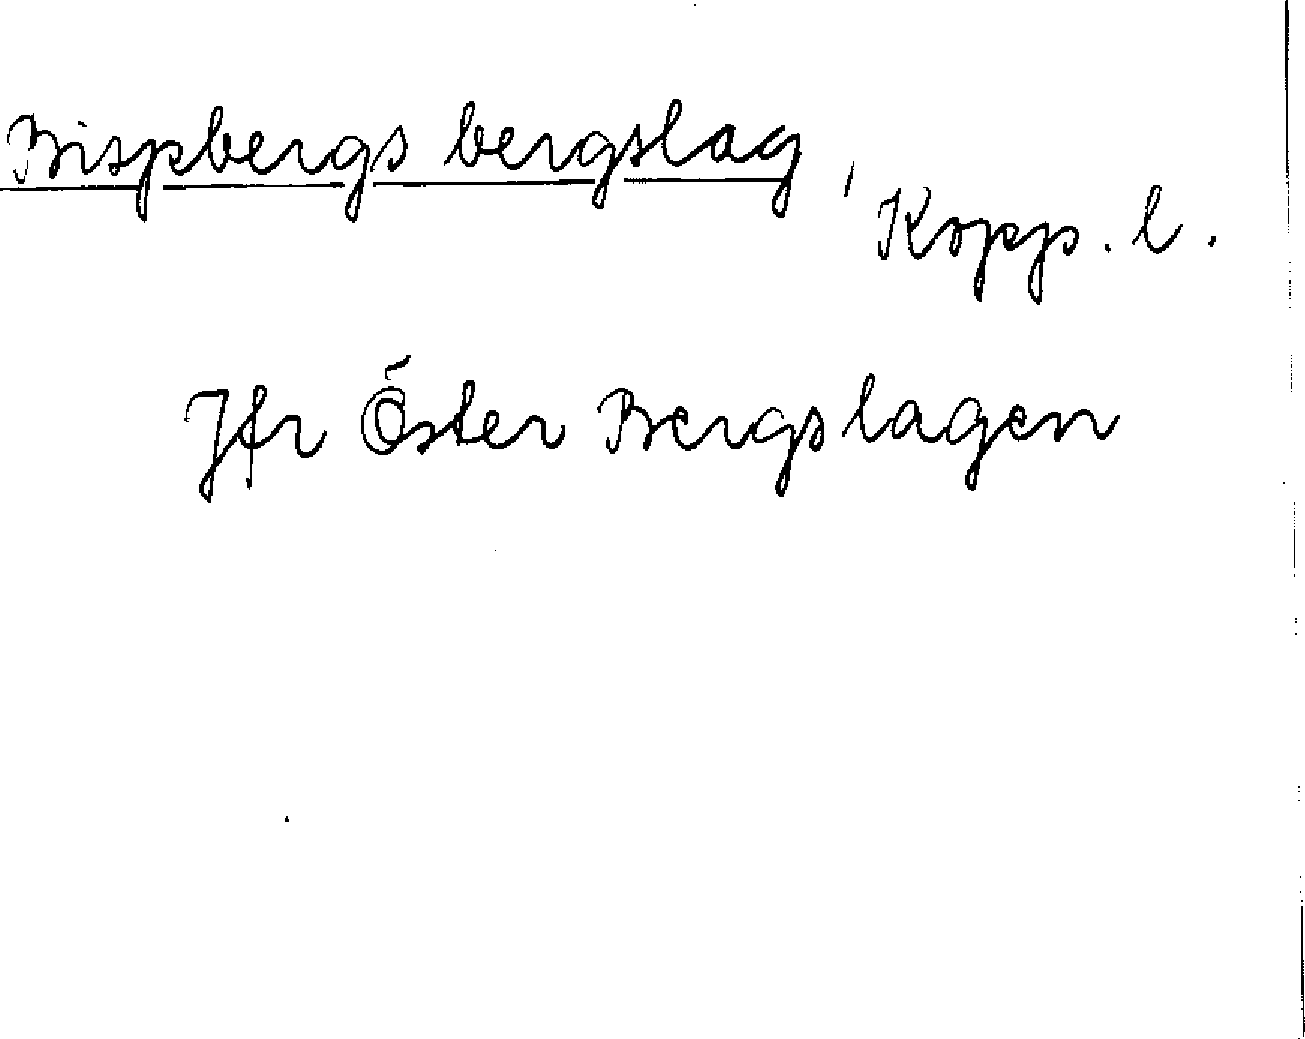 Bispbergs bergslag, Kopp. l.
Jfr Öster Bergslagen